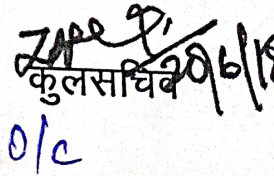 कुलसचिव 20/6/18
O/c